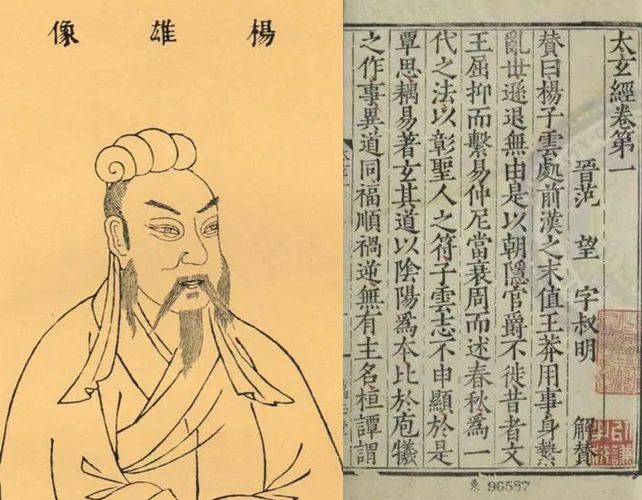 楊雄像
太玄經卷第一
晉范 望 字叔明 解贊
贊曰楊子雲處前漢之末值王莽用事身縶
亂世遜退無由是以朝隱官爵不徙昔者文
王屈抑而繫易仲尼當衰周而述春秋爲一
代之法以彰聖人之符子雲志不申顯於是
覃思耦易著玄其道以陰陽爲本比於庖犧
之作事異道同福順禍逆無有主名桓譚謂
東 96587